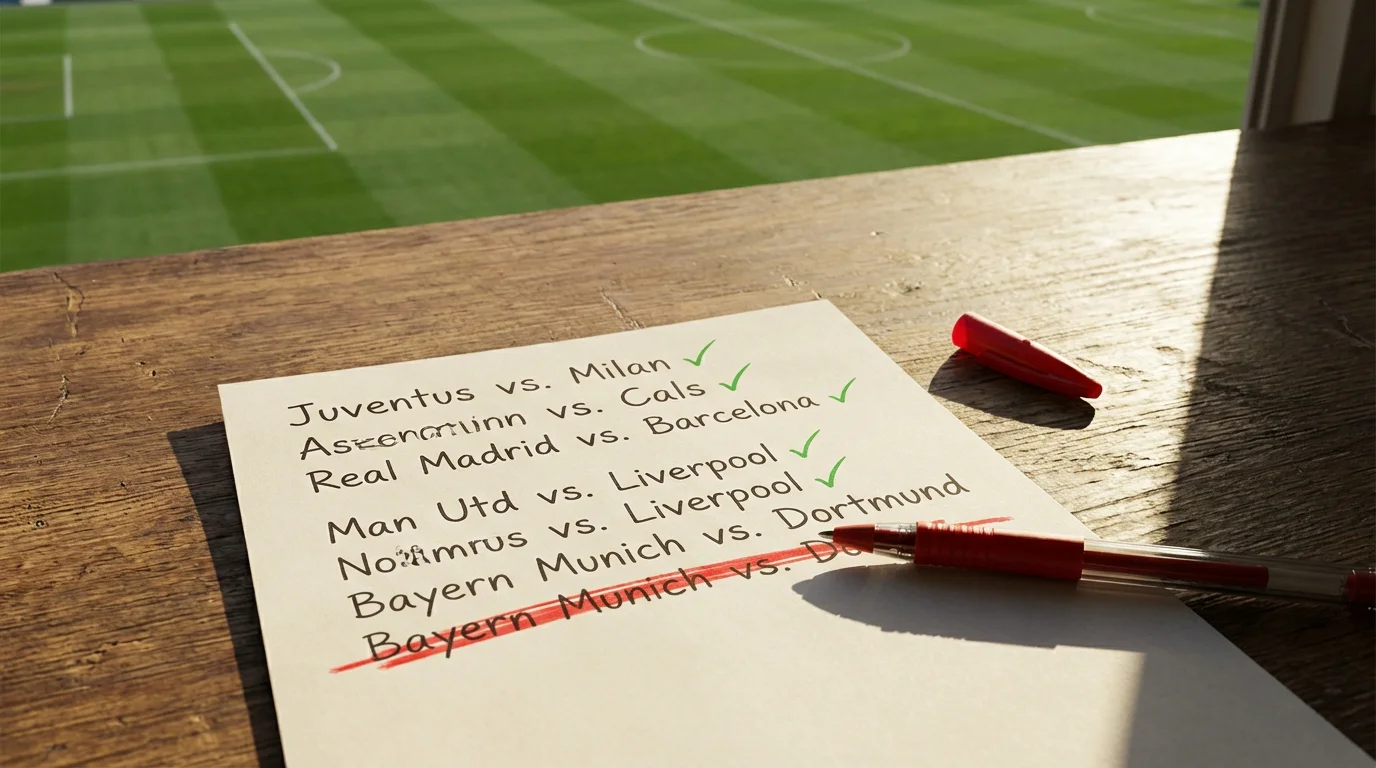 Juventus vs. Milan ✓
vs. Cals ✓
Real Madrid vs. Barcelona ✓
Man Utd vs. Liverpool ✓
vs. Liverpool ✓
Bayern Munich vs. Dortmund
Bayern Munich vs.